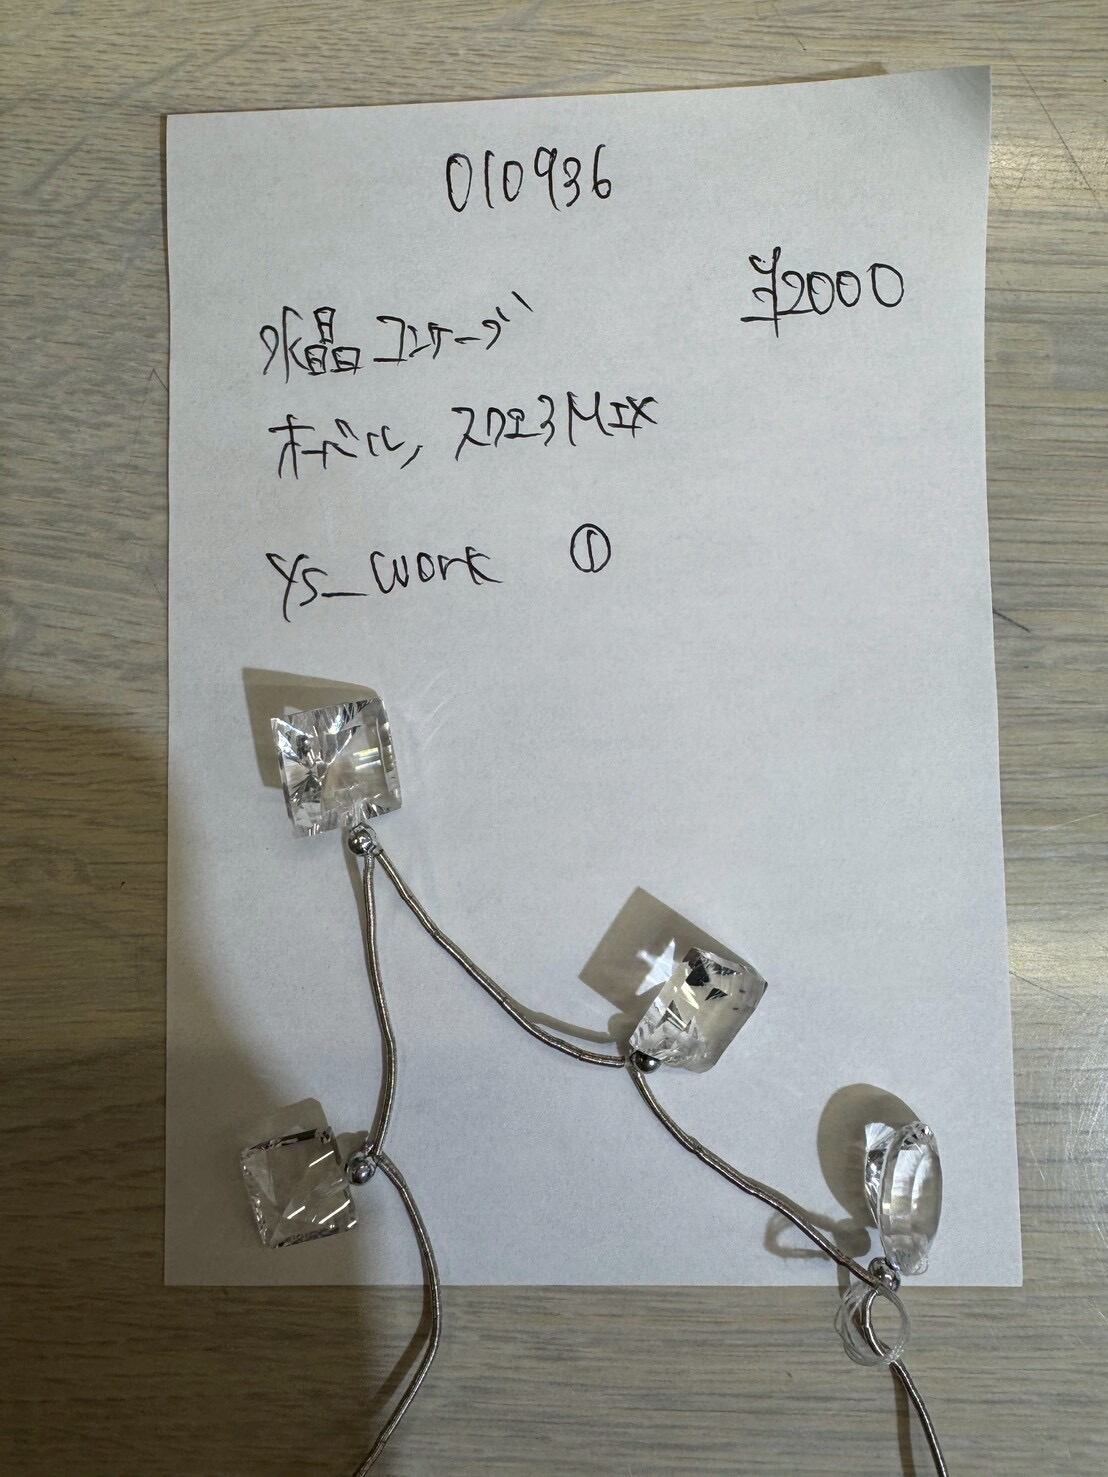 010936
¥2000
水晶 コンケーブ
オーバル, スクエアMIX
YS_work ①